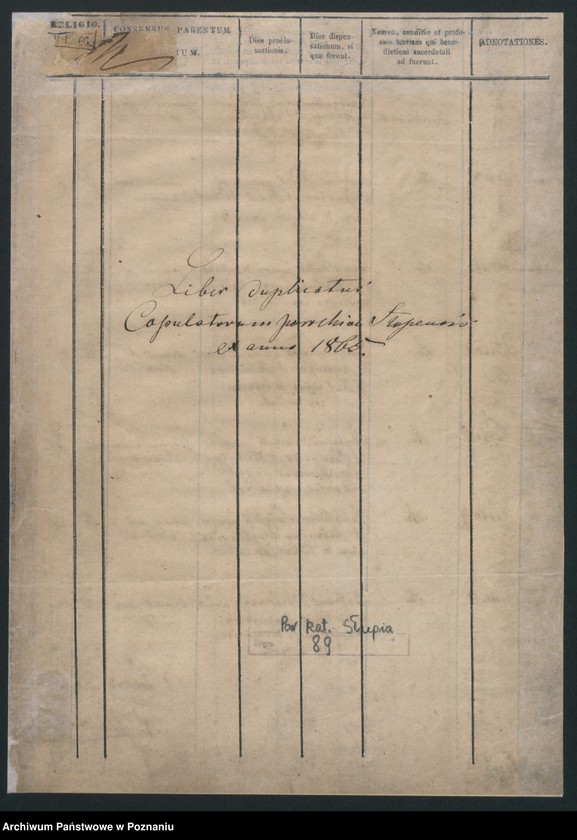 RELIGIO.
CONSENSUS PARENTUM
TUM.
Dies proclamationis.
Dies dispensationum, si quæ forent.
Nomen, conditio et professio testium qui benedictioni sacerdotali adfuerunt.
ADNOTATIONES.
Liber duplicatus
Copulatorum parochiae Slupensis
ex anno 1866.
Par kat. Słupia
89
Archiwum Państwowe w Poznaniu